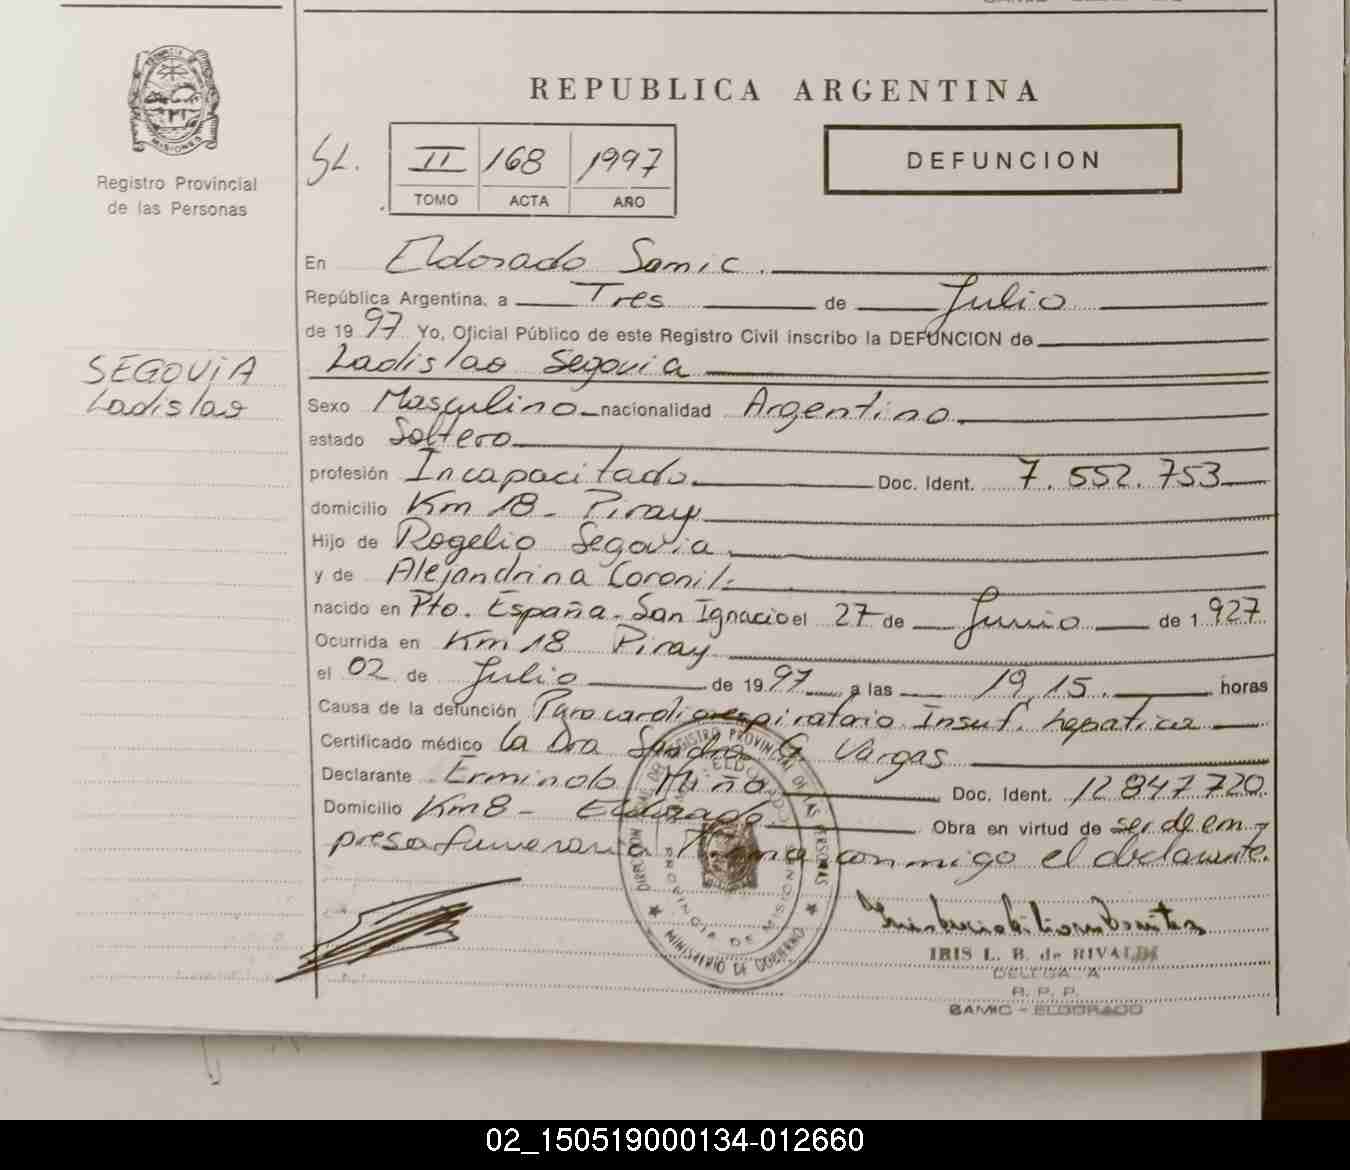 REPUBLICA ARGENTINA
Registro Provincial
de las Personas
SL.
II 168 1997
TOMO ACTA AÑO
DEFUNCION
En Eldorado Samic.
República Argentina, a Tres de Julio
de 1997 Yo, Oficial Público de este Registro Civil inscribo la DEFUNCION de
Ladislao Segovia
SEGOVIA
Ladislao
Sexo Masculino nacionalidad Argentino
estado Soltero
profesión Incapacitado Doc. Ident. 7.552.753
domicilio Km 18 - Piray
Hijo de Rogelio Segovia
y de Alejandrina Coronil.
nacido en Pto. España - San Ignacio el 27 de Junio de 1927
Ocurrida en Km 18 Piray
el 02 de Julio de 1997 a las 19,15. horas
Causa de la defunción Paro cardiorespiratorio Insuf. hepatica
Certificado médico La Dra Sandra G. Vargas
Declarante Erminolo Miño Doc. Ident. 12847720.
Domicilio Km8 - Eldorado Obra en virtud de ser de em-
presa funeraria Firma conmigo el declarante.
DIRECCION GRAL. DEL REGISTRO PROVINCIAL DE LAS PERSONAS
ELDORADO
PROVINCIA DE MISIONES
MINISTERIO DE GOBIERNO
IRIS L. B. de RIVALDI
DELEGADA
R. P. P.
SAMIC - ELDORADO
02_150519000134-012660